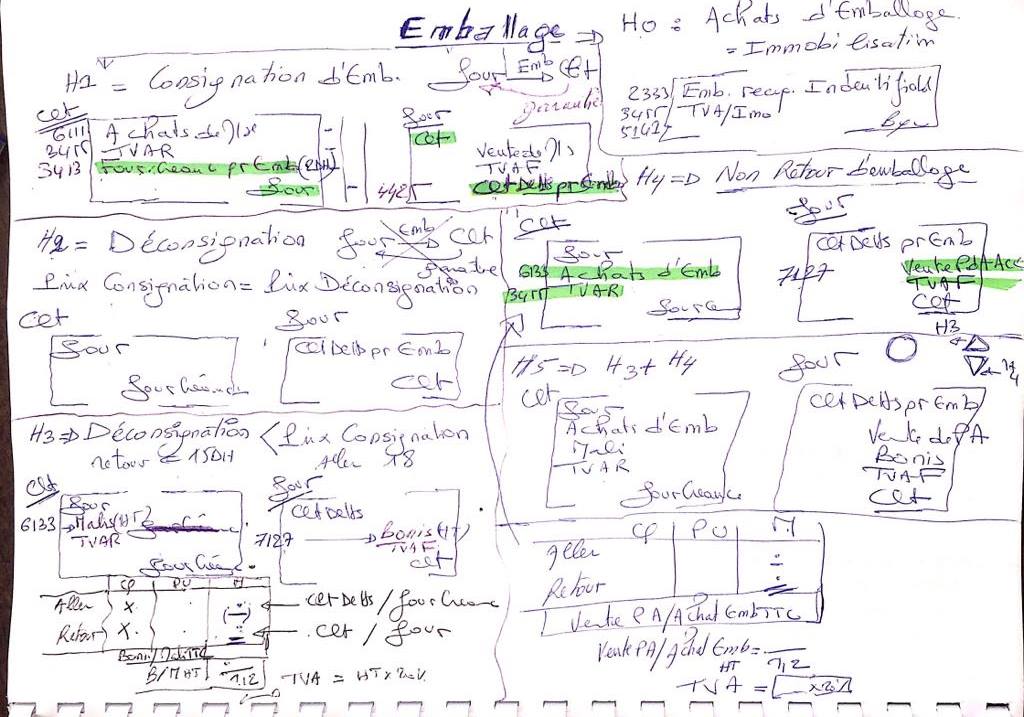 Emballage ⇒
H0 : Achats d'Emballage.
= Immobilisation
2333 Emb. recup. Indentifiabl
3455 TVA/Imo
5142
H1 = Consignation d'Emb.
Four Emb → Clt
garantie
Clt
6111 Achats de M/se
3455 TVAR
3413 Four. Créance pr Emb (PDH)
Four
Four
Clt
Vente de M/s
TVAF
4425 Clt Detts pr Emb
H2 = Déconsignation
Four Emb Clt
Prix Consignation = Prix Déconsignation
Clt
Four
Four Créance
Four
Clt Detts pr Emb
Clt
H3 ⇒ Déconsignation < Prix Consignation
retour 15DH Aller 18
Clt
Four
6133 Malis (HT)
TVAR
Four Créance
Four
Clt Detts
7127 Bonis (HT)
TVAF
Clt
Q PU M
Aller X . ← Clt Detts / Four Créance
Retour X . ← Clt / Four
Bonis/Mali TTC
B/M HT 1,2
TVA = HT x 20%
H4 ⇒ Non Retour d'emballage
Clt
Four
6133 Achats d'Emb
3455 TVAR
Four Créance
Four
Clt Detts pr Emb
7127 Vente Pdt Acc
TVAF
Clt
H3
H4
H5 ⇒ H3 + H4
Clt
Four
Achats d'Emb
Mali
TVAR
Four Créance
Four
Clt Detts pr Emb
Vente de PA
Bonis
TVAF
Clt
Q PU M
Aller
Retour
Vente PA/Achat Emb TTC
Vente PA/Achat Emb HT = 1,2
TVA = x20%